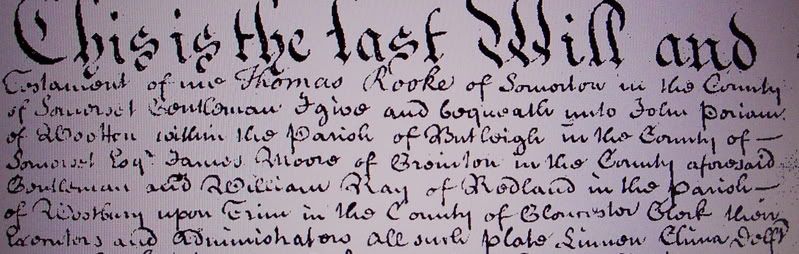 This is the last Will and
Testament of me Thomas Rooke of Somerton in the County
of Somerset Gentleman I give and bequeath unto John Periam
of Wootton within the Parish of Butleigh in the County of —
Somerset Esqr. James Moore of Greinton in the County aforesaid
Gentleman and William Ray of Redland in the Parish —
of Westbury upon Trim in the County of Gloucester Clerk their
Executors and Administrators All such Plate Linnen China Delft